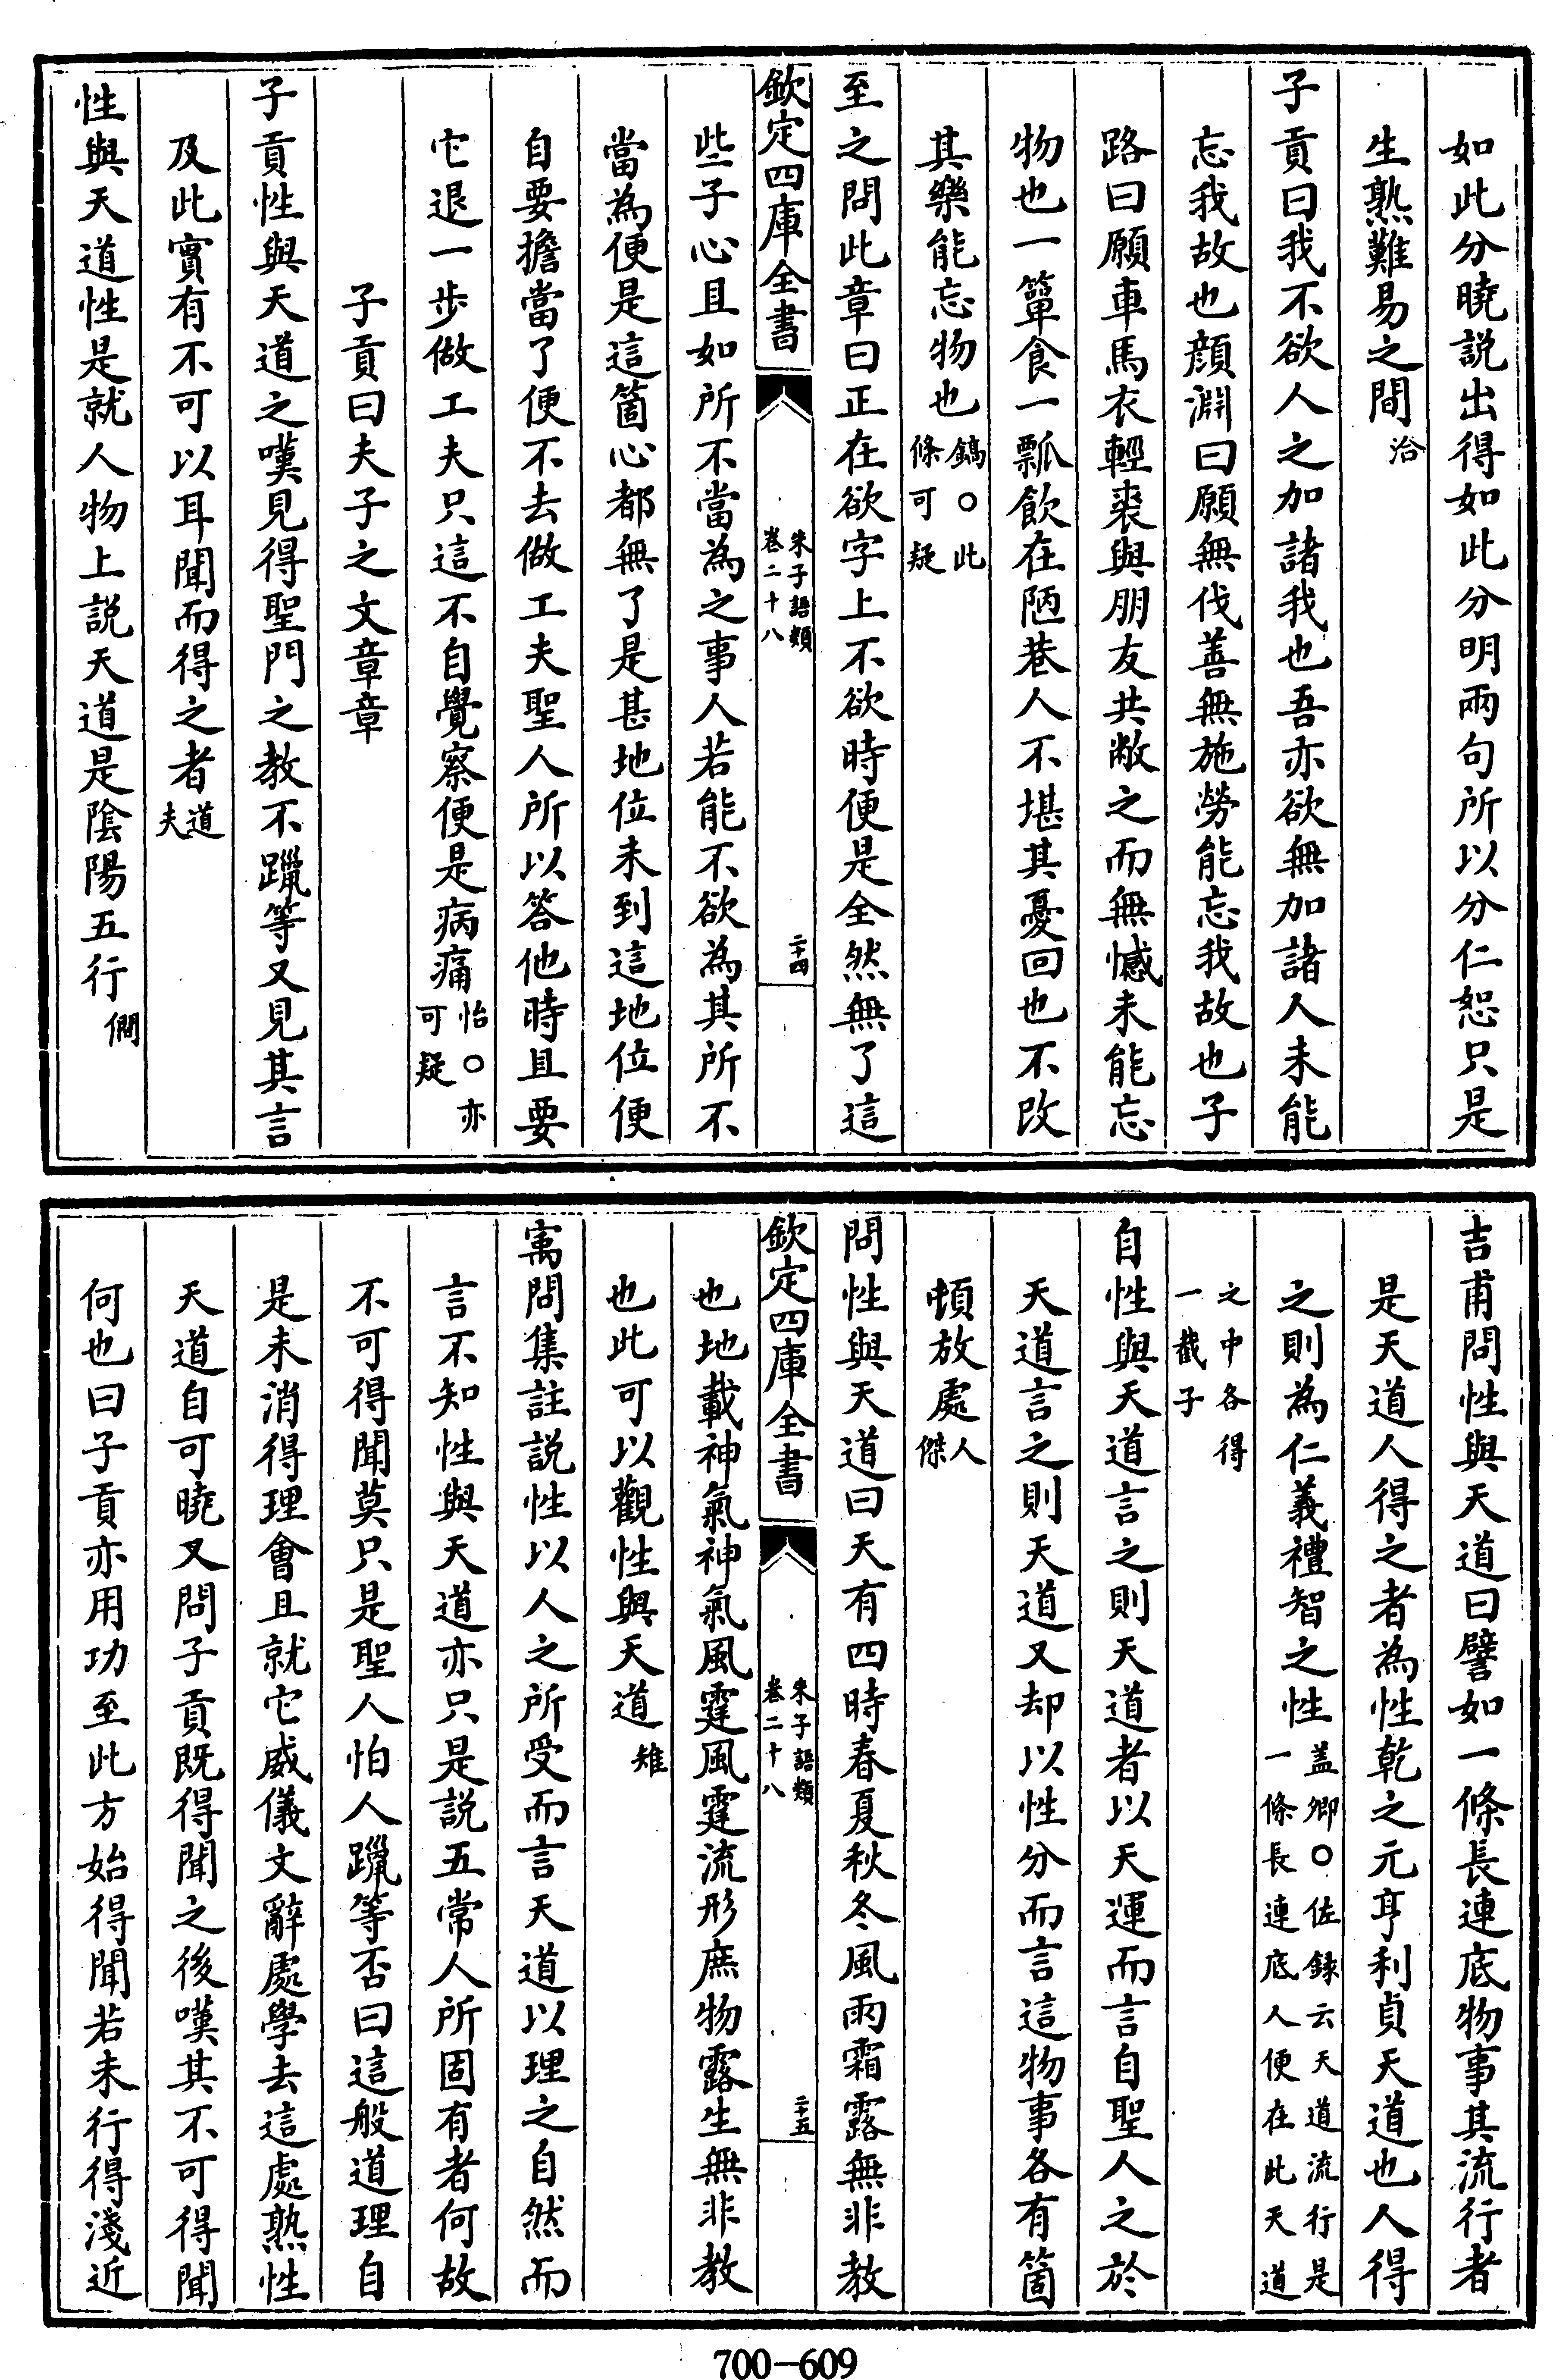 如此分曉説出得如此分明兩句所以分仁恕只是
生熟難易之間洽
子貢曰我不欲人之加諸我也吾亦欲無加諸人未能
忘我故也顔淵曰願無伐善無施勞能忘我故也子
路曰願車馬衣輕裘與朋友共敝之而無憾未能忘
物也一簞食一瓢飲在陋巷人不堪其憂回也不改
其樂能忘物也鎬〇此條可疑
至之問此章曰正在欲字上不欲時便是全然無了這
欽定四庫全書 朱子語類卷二十八 二十四
些子心且如所不當為之事人若能不欲為其所不
當為便是這箇心都無了是甚地位未到這地位便
自要擔當了便不去做工夫聖人所以答他時且要
它退一步做工夫只這不自覺察便是病痛怡〇亦可疑
子貢曰夫子之文章章
子貢性與天道之嘆見得聖門之教不躐等又見其言
及此實有不可以耳聞而得之者道夫
性與天道性是就人物上説天道是陰陽五行僩
吉甫問性與天道曰譬如一條長連底物事其流行者
是天道人得之者為性乾之元亨利貞天道也人得
之則為仁義禮智之性盖卿〇佐録云天道流行是一條長連底人便在此天道
之中各得一截子
自性與天道言之則天道者以天運而言自聖人之於
天道言之則天道又却以性分而言這物事各有箇
頓放處人傑
問性與天道曰天有四時春夏秋冬風雨霜露無非教
欽定四庫全書 朱子語類卷二十八 二十五
也地載神氣神氣風霆風霆流形庶物露生無非教
也此可以觀性與天道雉
㝢問集註説性以人之所受而言天道以理之自然而
言不知性與天道亦只是説五常人所固有者何故
不可得聞莫只是聖人怕人躐等否曰這般道理自
是未消得理會且就它威儀文辭處學去這處熟性
天道自可曉又問子貢既得聞之後嘆其不可得聞
何也曰子貢亦用功至此方始得聞若未行得淺近
700-609